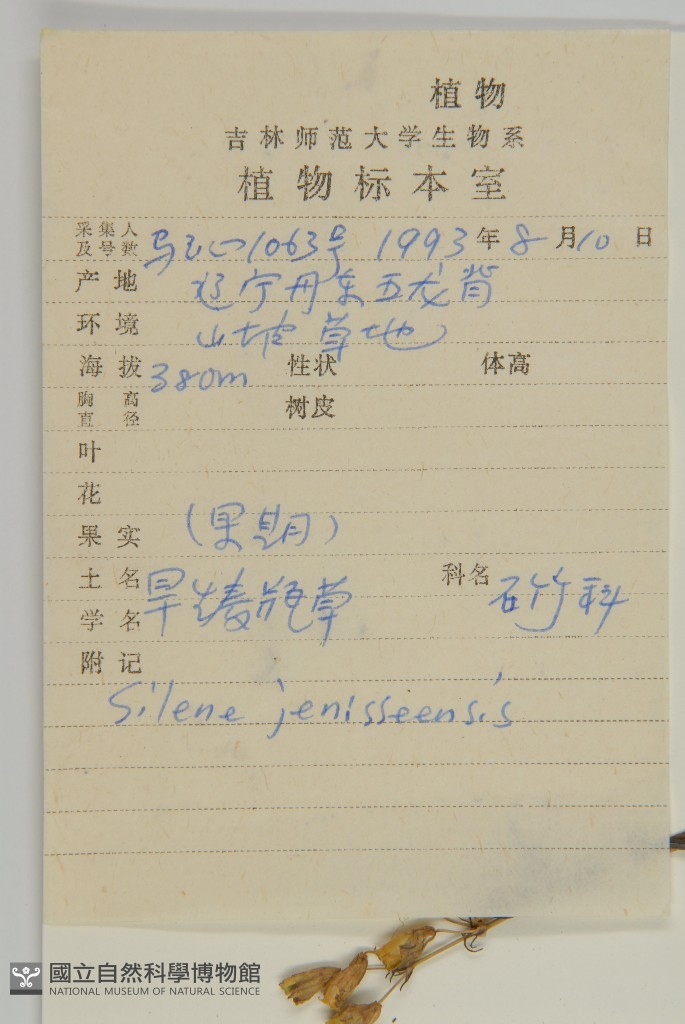 植物
吉林师范大学生物系
植物标本室
采集人
及号数 1063号 1993年8月10日
产地 辽宁丹东五龙背
环境 山坡草地
海拔 380m 性状 体高
胸高
直径 树皮
叶
花
果实 (果期)
土名 旱麦瓶草 科名 石竹科
学名
附记
Silene jenisseensis
國立自然科學博物館
NATIONAL MUSEUM OF NATURAL SCIENCE